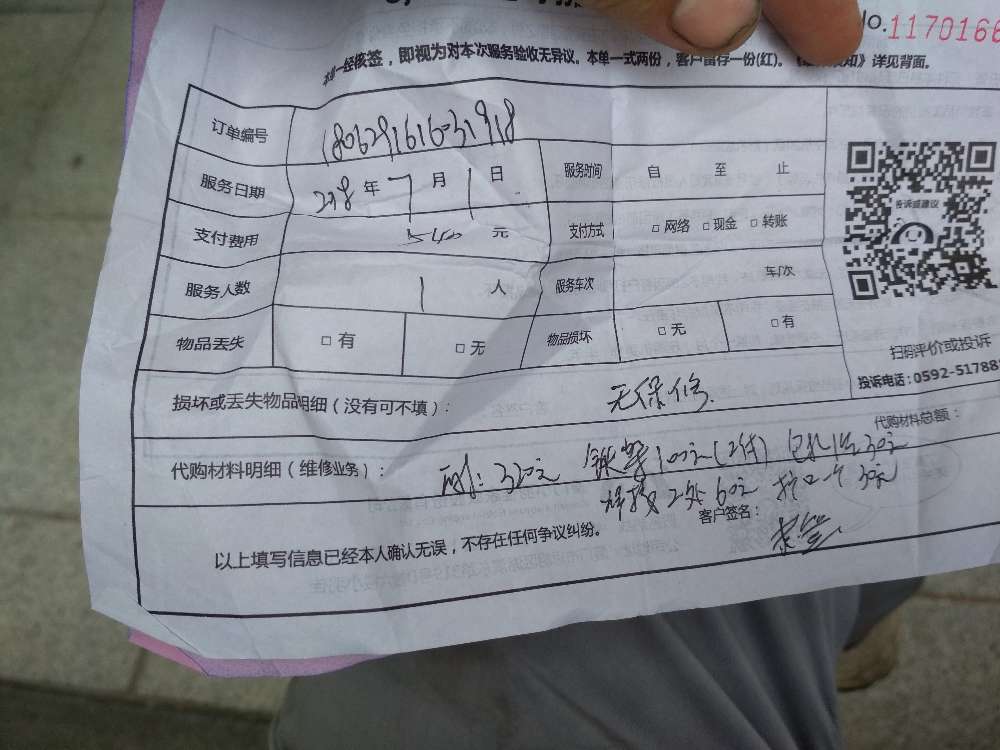 No.1170166
本单一经核签，即视为对本次服务验收无异议。本单一式两份，客户留存一份(红)。 知》详见背面。
订单编号 180629161631918
服务日期 2018 年 7 月 1 日 服务时间 自 至 止
支付费用 540 元 支付方式 □网络 □现金 □转账
投诉或建议
服务人数 1 人 服务车次 车/次
物品丢失 □有 □无 物品损坏 □无 □有
扫码评价或投诉
投诉电话:0592-51788
损坏或丢失物品明细（没有可不填）： 无保修
代购材料总额：
代购材料明细（维修业务）： 320元 100元(2付) 30元
焊接2处60元 一个30元
客户签名：
以上填写信息已经本人确认无误，不存在任何争议纠纷。